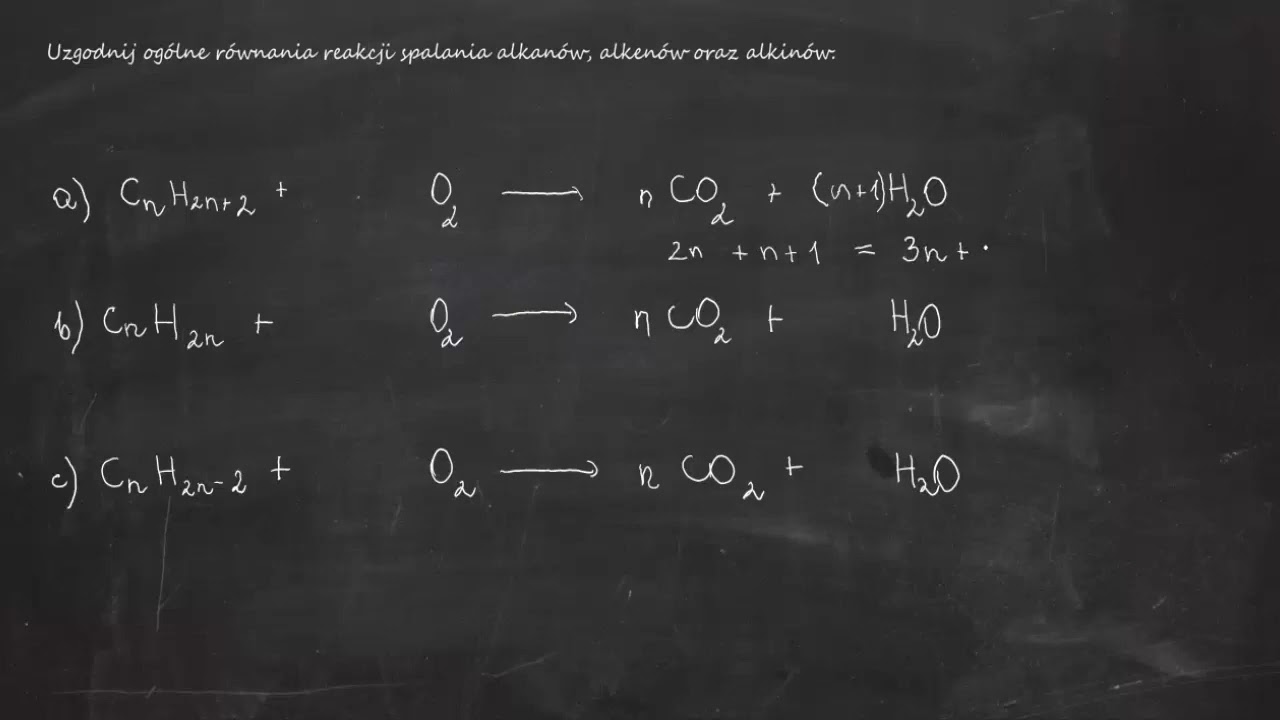 Uzgodnij ogólne równania reakcji spalania alkanów, alkenów oraz alkinów.
a) CnH2n+2 + O2 → n CO2 + (n+1)H2O
2n + n+1 = 3n+
b) CnH2n + O2 → n CO2 + H2O
c) CnH2n-2 + O2 → n CO2 + H2O